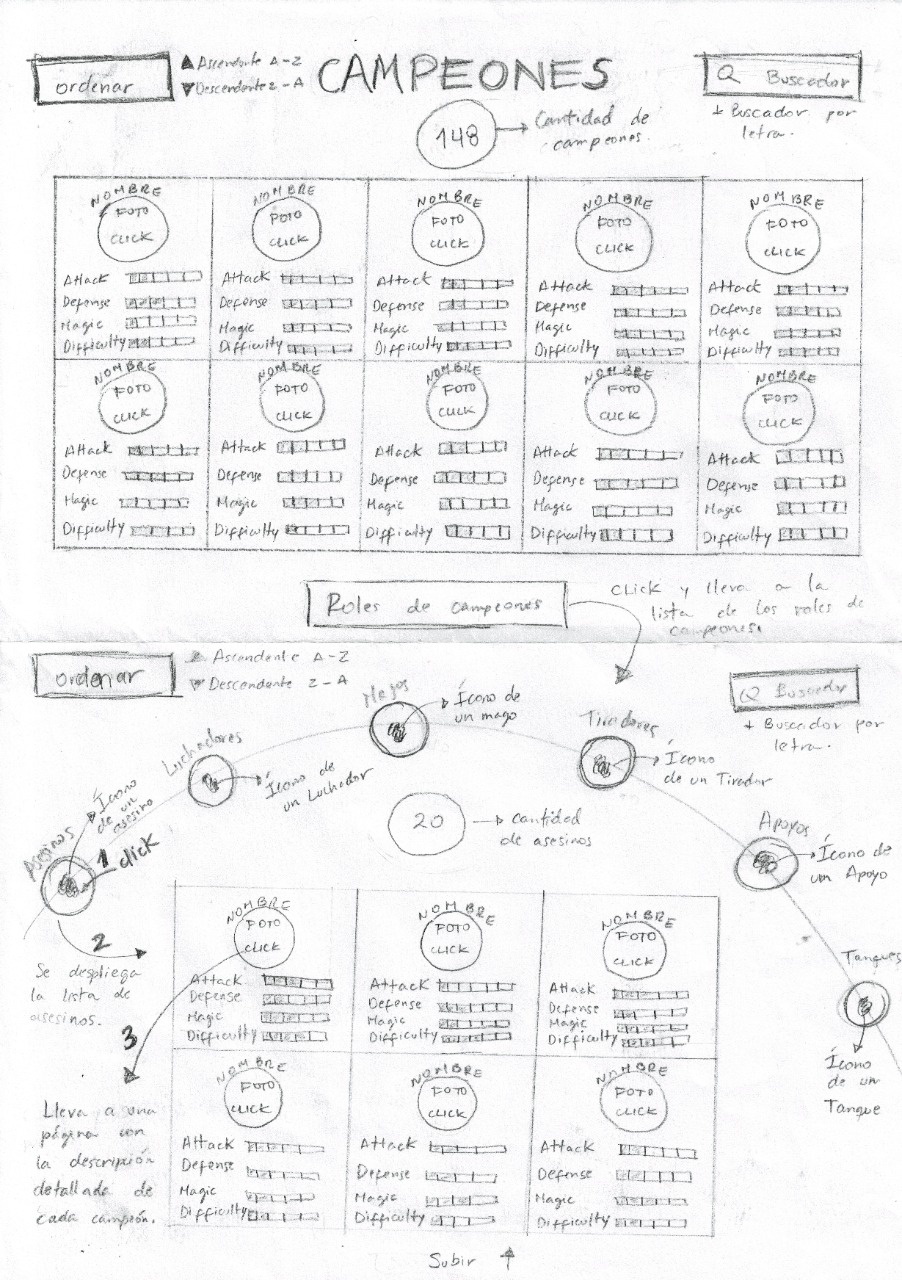 ordenar
▲ Ascendente A-Z
▼ Descendente Z-A
CAMPEONES
Q Buscador
+ Buscador por
letra.
148
→ Cantidad de
campeones.
NOMBRE
FOTO
CLICK
Attack
Defense
Magic
Difficulty
NOMBRE
FOTO
CLICK
Attack
Defense
Magic
Difficulty
NOMBRE
FOTO
CLICK
Attack
Defense
Magic
Difficulty
NOMBRE
FOTO
CLICK
Attack
Defense
Magic
Difficulty
NOMBRE
FOTO
CLICK
Attack
Defense
Magic
Difficulty
NOMBRE
FOTO
CLICK
Attack
Defense
Magic
Difficulty
NOMBRE
FOTO
CLICK
Attack
Defense
Magic
Difficulty
NOMBRE
FOTO
CLICK
Attack
Defense
Magic
Difficulty
NOMBRE
FOTO
CLICK
Attack
Defense
Magic
Difficulty
NOMBRE
FOTO
CLICK
Attack
Defense
Magic
Difficulty
Roles de campeones
CLICK y lleva a la
lista de los roles de
campeones.
ordenar
Ascendente A-Z
▼ Descendente Z-A
Q Buscador
+ Buscador por
letra.
Asesinos
Ícono
de un
asesino
1 click
Luchadores
Ícono de
un Luchador
Magos
Ícono de
un mago
Tiradores
Ícono
de un Tirador
Apoyos
Ícono de
un Apoyo
Tanques
Ícono
de un
Tanque
20
→ cantidad
de asesinos
2
Se despliega
la lista de
asesinos.
3
Lleva a una
página con
la descripción
detallada de
cada campeón.
NOMBRE
FOTO
CLICK
Attack
Defense
Magic
Difficulty
NOMBRE
FOTO
CLICK
Attack
Defense
Magic
Difficulty
NOMBRE
FOTO
CLICK
Attack
Defense
Magic
Difficulty
NOMBRE
FOTO
CLICK
Attack
Defense
Magic
Difficulty
NOMBRE
FOTO
CLICK
Attack
Defense
Magic
Difficulty
NOMBRE
FOTO
CLICK
Attack
Defense
Magic
Difficulty
Subir ↑